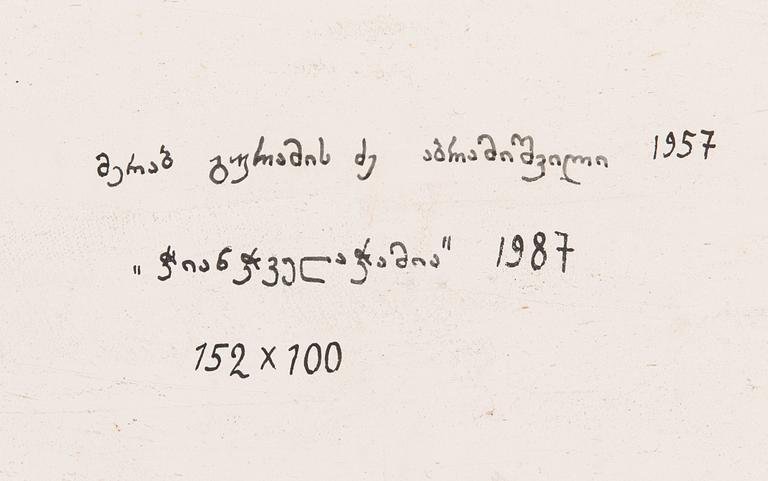 მერაბ გურამის ძე აბრამიშვილი 1957
„ჭიანჭველაჭამია" 1987
152 x 100